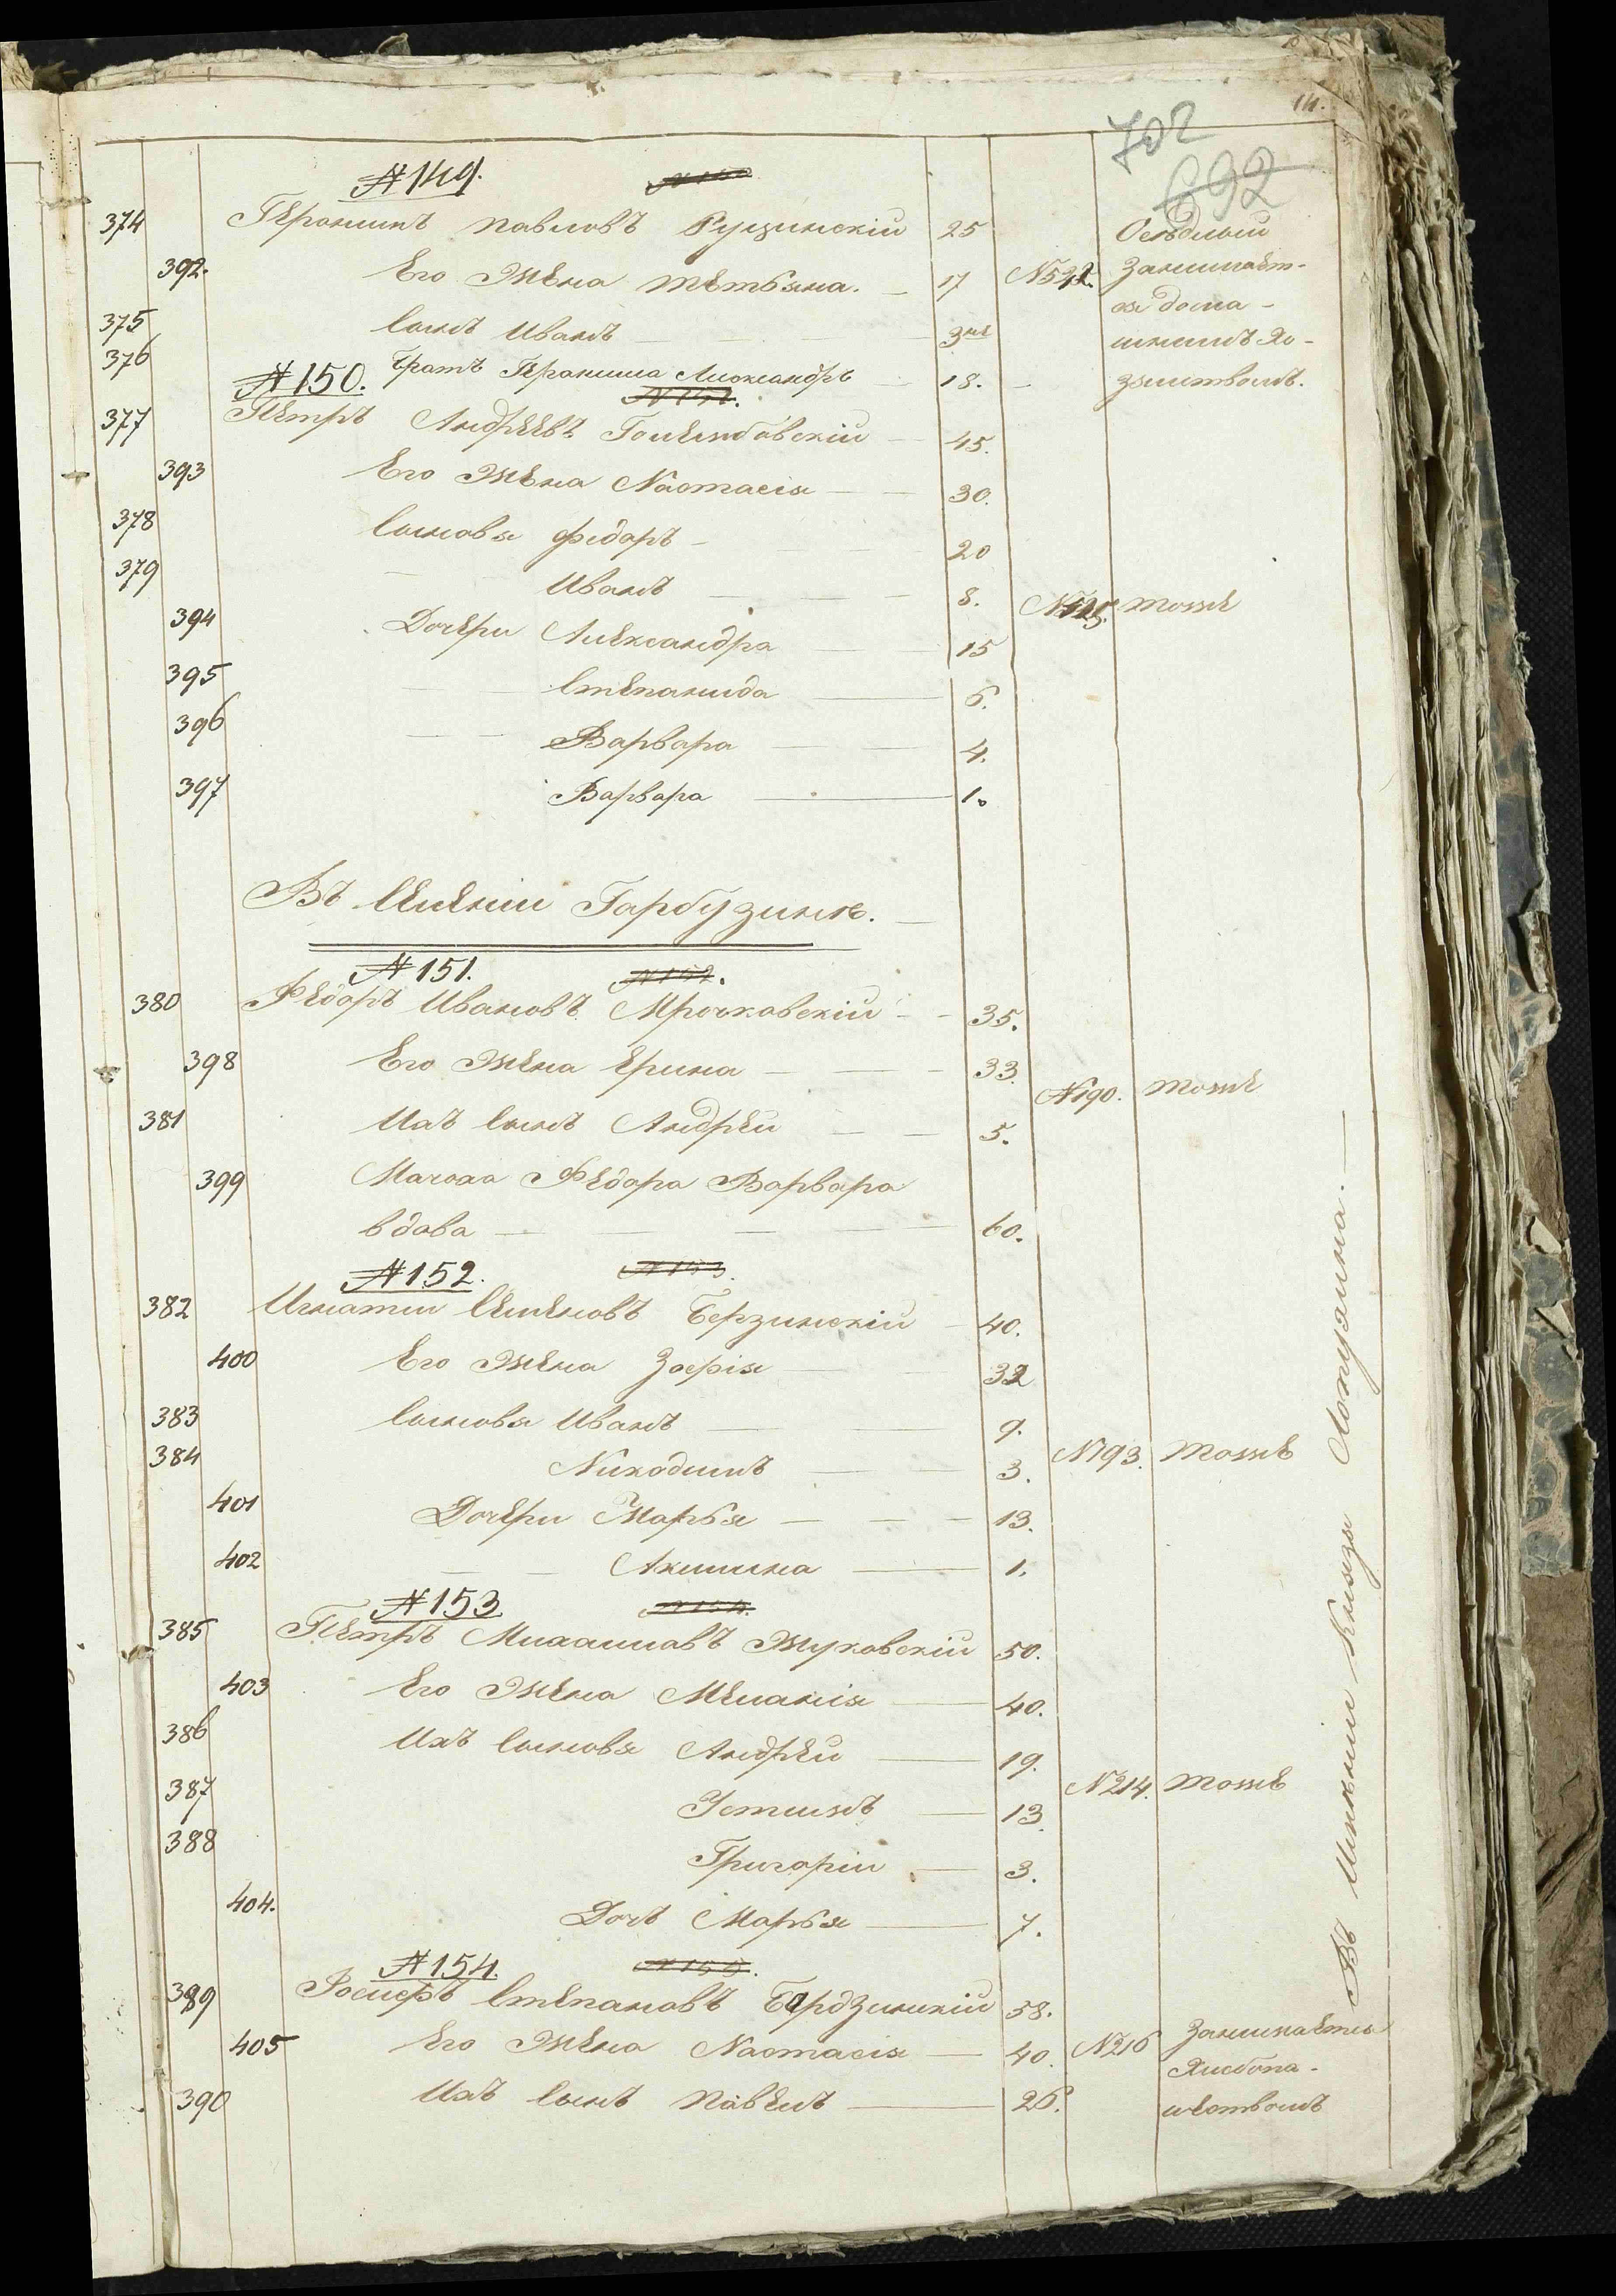 14.
702
692
№ 149.
374 Геронимъ Павловъ Рущинскій 25 Осѣдлый
392. Его Жена Тетьяна. 17 № 522. Занимает-
375 Сынъ Иванъ 3 ся дома-
376 Братъ Геронима Александръ 18. шнимъ Хо-
зяйствомъ.
№ 150.
377 Петръ Андреевъ Голембовскій 45.
393 Его Жена Настасія 30.
378 Сыновья Федоръ 20
379 Иванъ 8. тоже
394 Дочери Александра 15
395 Степанида 6.
396 Варвара 4.
397 Варвара 1.
Въ Селеніи Гарбузинѣ.
№ 151. № 152.
380 Федоръ Ивановъ Мрочковскій 35.
398 Его Жена Ерина 33. № 190. тоже
381 Ихъ Сынъ Андрей 5.
399 Мачоха Федора Варвара
вдова 60.
№ 152. № 153.
382 Игнатій Семеновъ Берзинскій 40.
400 Его Жена Зофія 32
383 Сыновья Иванъ 9.
384 Никодимъ 3. № 193. тоже
401 Дочери Марья 13.
402 Акилина 1.
№ 153. № 154.
385 Петръ Михайловъ Жуковскій 50.
403 Его Жена Меланія 40.
386 Ихъ Сыновья Андрей 19.
387 Устинъ 13. № 214. тоже
388 Григорій 3.
404. Дочь Марья 7.
№ 154. № 155.
389 Іосифъ Степановъ Бардзинскій 58.
405 Его Жена Настасія 40. № 216 Занимается
390 Ихъ Сынъ Павелъ 26. Хлебопа-
шествомъ
Въ Имѣніи Князя Лопухина.